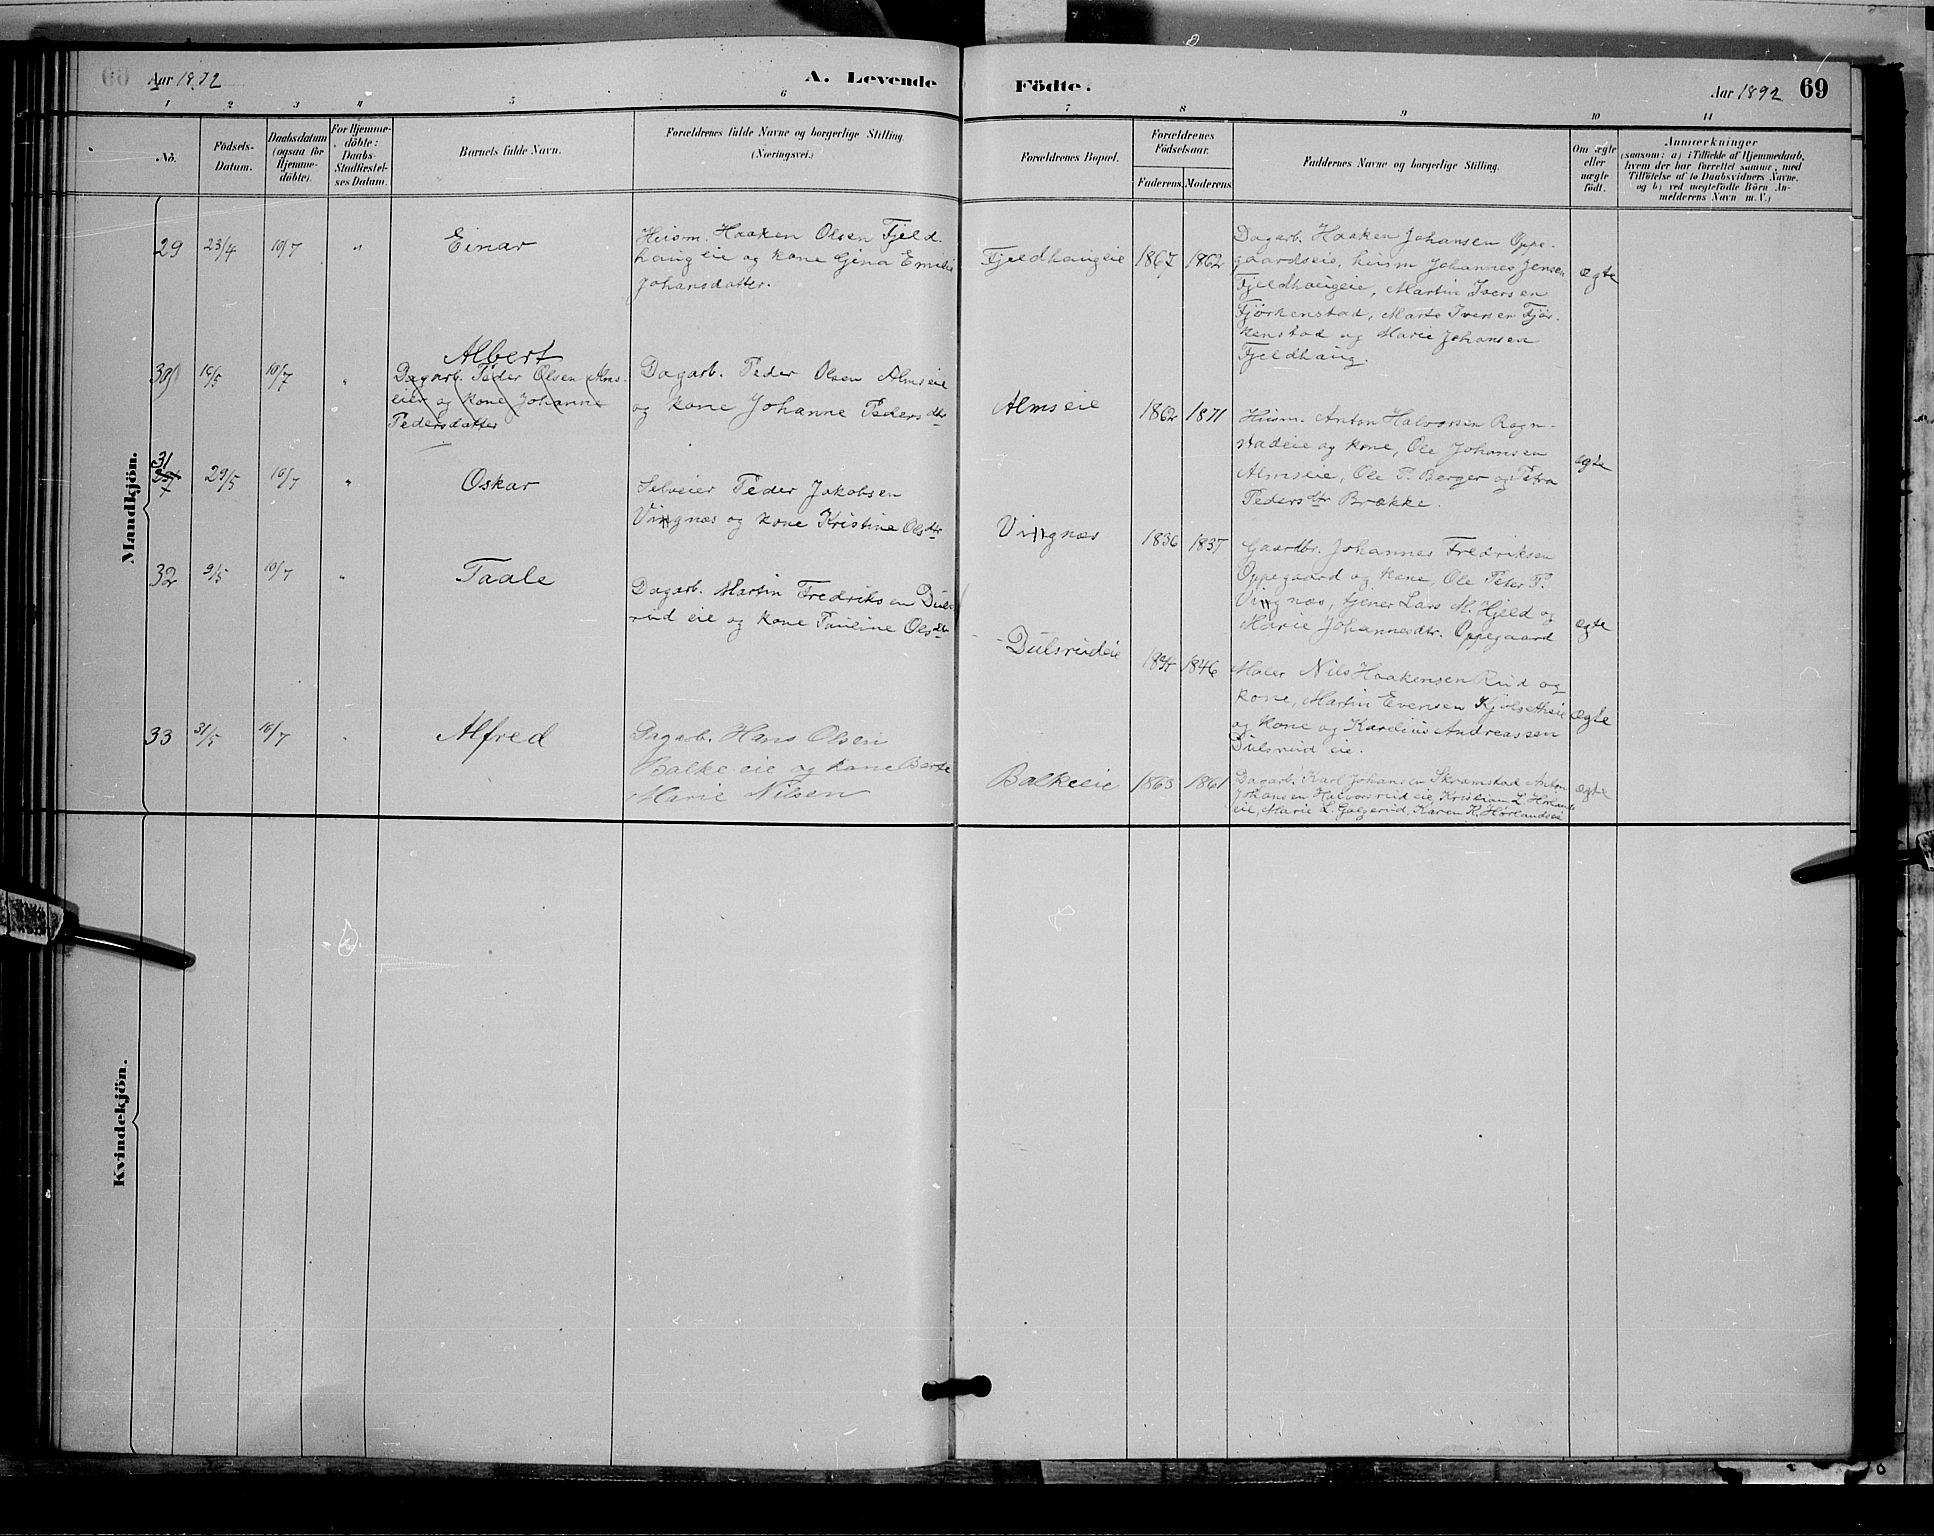 Aar 1892
A. Levende
Födte.
Aar 1892
69
1 2 3 4 5 6 7 8 9 10 11
No.
Födsels-
Datum.
Daabsdatum
(ogsaa for
Hjemme-
döbte).
For Hjemme-
döbte:
Daabs-
Stadfæstel-
ses Datum.
Barnets fulde Navn.
Forældrenes fulde Navne og borgerlige Stilling.
(Næringsvei.)
Forældrenes Bopæl.
Forældrenes
Födselsaar.
Faderens.
Moderens.
Faddernes Navne og borgerlige Stilling.
Om ægte
eller
uægte
födt.
Anmærkninger
(saasom: a) i Tilfælde af Hjemmedaab,
hvem der har forrettet samme, med
Tilföielse af to Daabsvidners Navne,
og b) ved uægtefödte Börn An-
melderens Navn m. V.)
Mandkjön.
29 23/4 10/7 " Einar
Huism. Haaken Olsen Fjeld-
haugeie og kone Gina Emilie
Johansdatter.
Fjeldhaugeie 1867 1862
Dagarb. Haaken Johansen Oppe-
gaardseie, huism Johannes Jensen
Fjeldhaugeie, Martin Iversen
Fjörkenstad, Marte Iversen Fjör-
kenstad og Marie Johansen
Fjeldhaug.
ægte
30 10/7 " Albert
Dagarb. Peder Olsen Alms-
eie og kone Johanne
Pedersdatter
Dagarb. Peder Olsen Almseie
og kone Johanne Pedersdtr
Almseie 1862 1871
Huism. Anton Halvorsen Rogn-
stadeie og kone, Ole Johansen
Almseie, Ole P. Berger og Petra
Pedersdtr Brække.
ægte
31 29/5 10/7 " Oskar
Selveier Peder Jakobsen
Vingnæs og kone Kristine Olsdtr
Vingnæs 1836 1837
Gaardbr. Johannes Fredriksen
Oppegaard og kone, Ole Peter P.
Vingnæs, tjener Lars M. Hjeld og
Marie Johannesdtr. Oppegaard
ægte
32 9/5 10/7 " Taale
Dagarb. Martin Fredriksen Duls-
rud eie og kone Pauline Olsdtr
Dulsrudeie 1846
Maler Nils Haakensen Rud og
kone, Martin Evensen Kjölsetheie
og kone og Karelius Andreassen
Dulsrud eie.
ægte
33 31/5 10/7 " Alfred
Dagarb. Hans Olsen
Balke eie og kone Berte
Marie Nilsen
Balkeeie 1863 1861
Dagarb. Karl Johansen Skramstad Anton
Johansen Halvorsrud eie, Kristian L. Hörlands
eie, Marie L. Galgerud, Karen K. Hörlandseie
ægte
Kvindekjön.